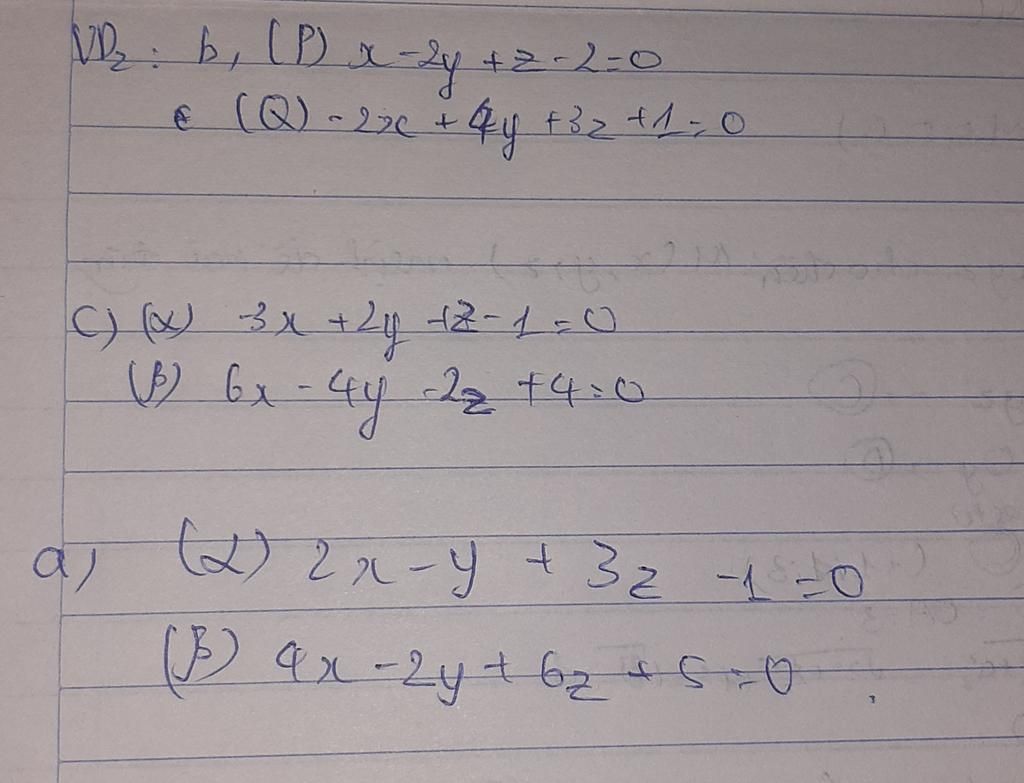 VD2: b, (P) x - 2y + z - 2 = 0
(Q) - 2x + 4y + 3z + 1 = 0
c) (α) -3x + 2y + z - 1 = 0
(β) 6x - 4y - 2z + 4 = 0
a) (α) 2x - y + 3z - 1 = 0
(β) 4x - 2y + 6z + 5 = 0